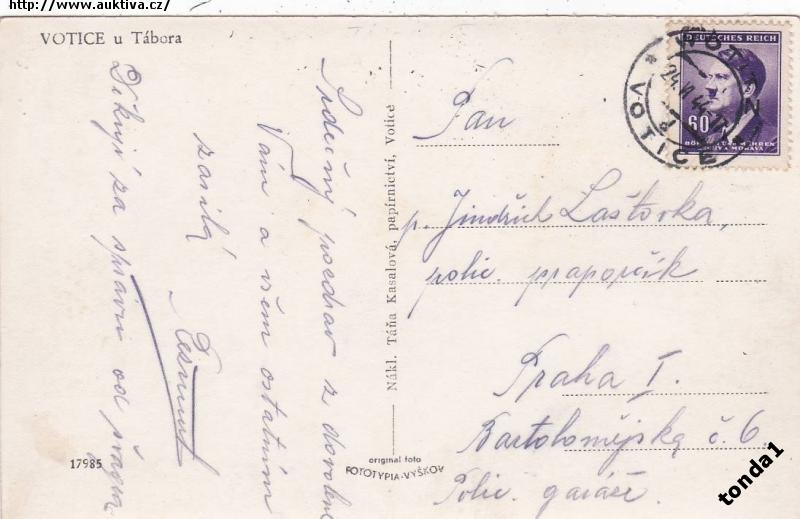 http://www.auktiva.cz/
VOTICE u Tábora
Srdečný pozdrav z dovolené
Vám a všem ostatním
zasílá
Děkuji za zprávu od
Nákl. Táňa Kasalová, papírnictví, Votice
DEUTSCHES REICH
60
BÖHMEN UND MÄHREN
ČECHY A MORAVA
VOTICE
Pan
p. Jindřich Laštovka,
polic. praporčík
Praha I.
Bartolomějská č. 6
Polic. garáže.
17985
original foto
FOTOTYPIA-VYŠKOV
tonda1